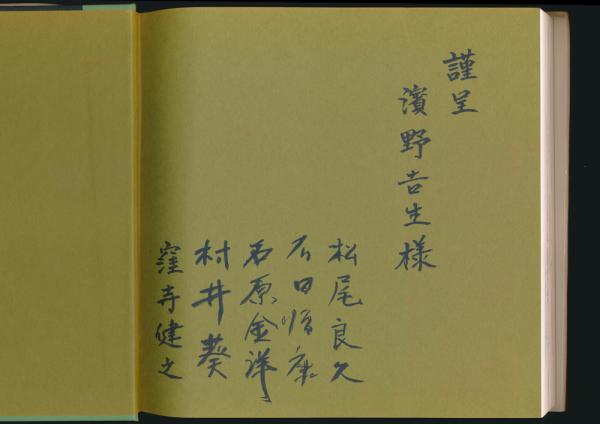 謹呈
濱野吉生様
松尾良久
石田順康
石原金洋
村井葵
窪寺健之